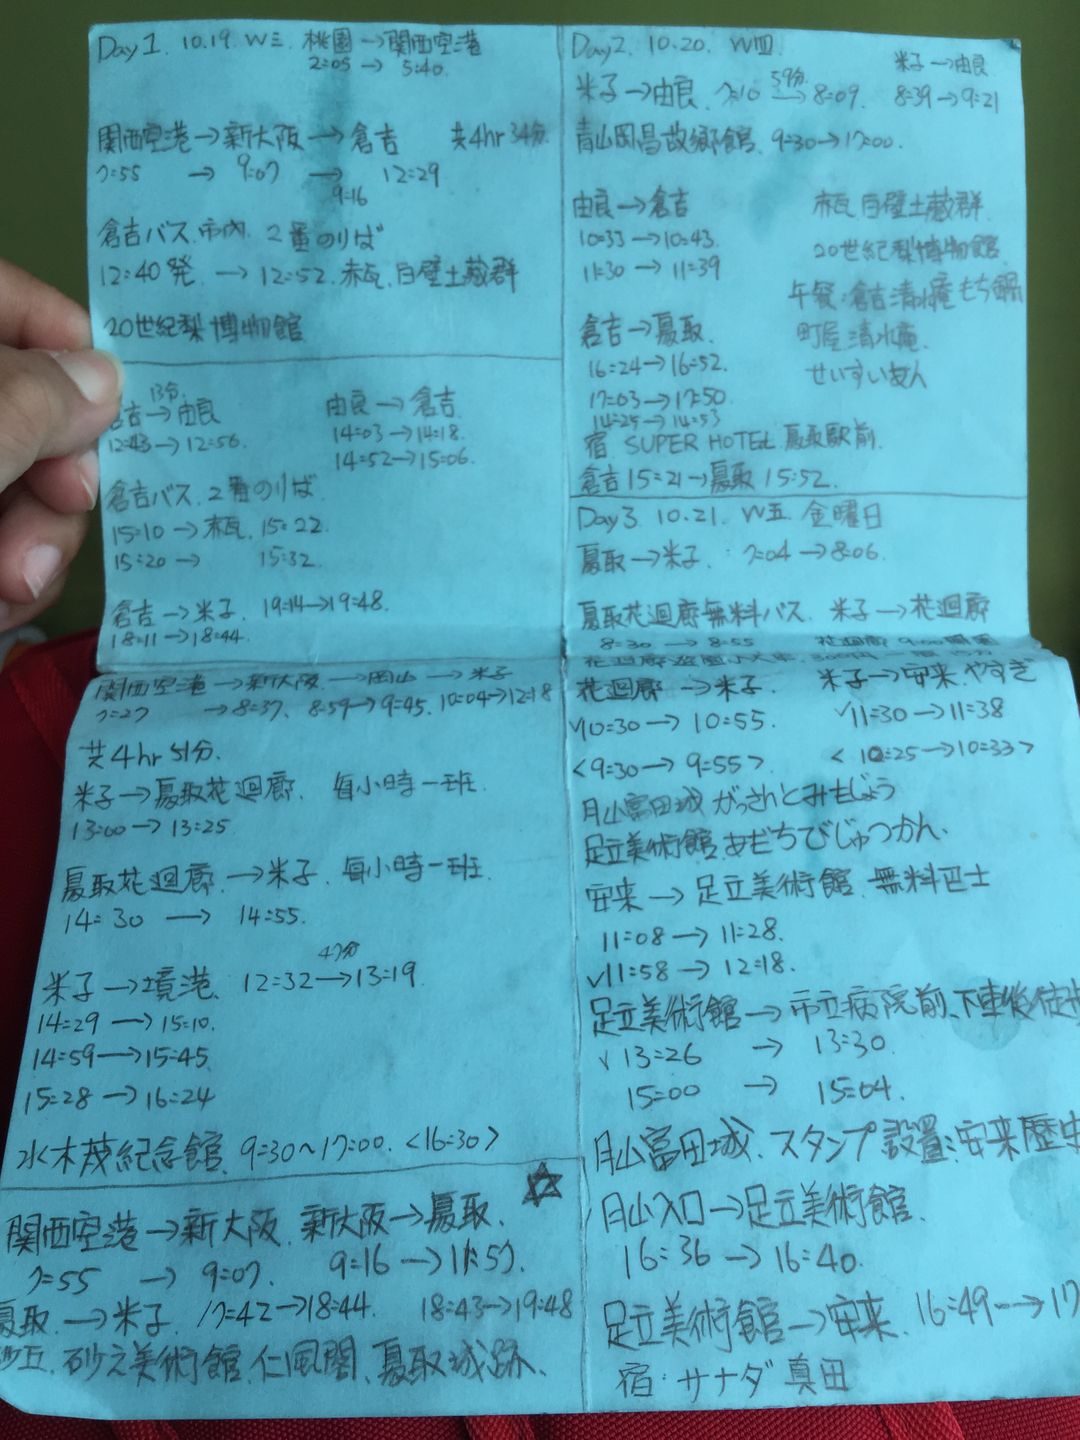 Day1. 10.19. W三. 桃園→関西空港
2:05 → 5:40.
関西空港→新大阪→倉吉 共4hr 34分.
7:55 → 9:07 → 12:29
9:16
倉吉バス.市内. 2番のりば
12:40発. → 12:52. 赤瓦.白壁土蔵群
20世紀梨博物館
13分.
倉吉→由良
12:43→12:56.
由良→倉吉
14:03→14:18.
14:52→15:06.
倉吉バス.2番のりば
15:10→赤瓦. 15:22.
15:20→ 15:32.
倉吉→米子. 19:14→19:48.
18:11→18:44.
関西空港→新大阪.→岡山→米子
7:27 →8:37. 8:59→9:45. 10:04→12:18
共4hr 51分.
米子→鳥取花迴廊. 每小時一班.
13:00→13:25.
鳥取花迴廊.→米子. 每小時一班.
14:30 → 14:55.
47分
米子→境港. 12:32→13:19.
14:29→15:10.
14:59→15:45.
15:28→16:24
水木茂紀念館. 9:30~17:00.<16:30>
関西空港→新大阪. 新大阪→鳥取.
7:55 → 9:07. 9:16→11:57.
鳥取.→米子. 17:42→18:44. 18:43→19:48
砂丘. 砂之美術館.仁風閣.鳥取城跡.
Day2. 10.20. W四.
米子→由良. 7:10 →8:09.
59分.
米子→由良
8:39→9:21
青山岡昌故郷館. 9:30→17:00.
由良→倉吉
10:33→10:43.
11:30→11:39
赤瓦.白壁土蔵群.
20世紀梨博物館
午餐:倉吉清水庵もち鍋
町屋清水庵.
せいすいあん
倉吉→鳥取.
16:24→16:52.
17:03→17:50
14:25→14:53
宿. SUPER HOTEL.鳥取駅前.
倉吉15:21→鳥取 15:52.
Day3. 10.21. W五. 金曜日
鳥取→米子. 7:04→8:06.
鳥取花迴廊無料バス. 米子→花迴廊
8:30 → 8:55 花迴廊 9:00開園
花迴廊→米子. 米子→安来.やすぎ
√10:30→10:55. √11:30→11:38
<9:30→9:55>. <10:25→10:33>
月山富田城 がっさんとみたじょう
足立美術館.あだちびじゅつかん.
安来→足立美術館.無料巴士
11:08→11:28.
√11:58→12:18.
足立美術館→市立病院前.下車後徒步
√13:26 → 13:30.
15:00 → 15:04.
月山富田城.スタンプ設置:安来歴史
月山入口→足立美術館.
16:36→16:40.
足立美術館→安来. 16:49→17
宿.サナダ 真田